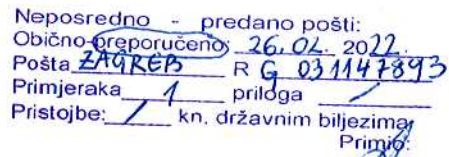 Neposredno - predano pošti:
Obično-preporučeno: 26. 02. 2022.
Pošta ZAGREB R G 031147893
Primjeraka 1 priloga /
Pristojbe: / kn. državnim biljezima
Primio: